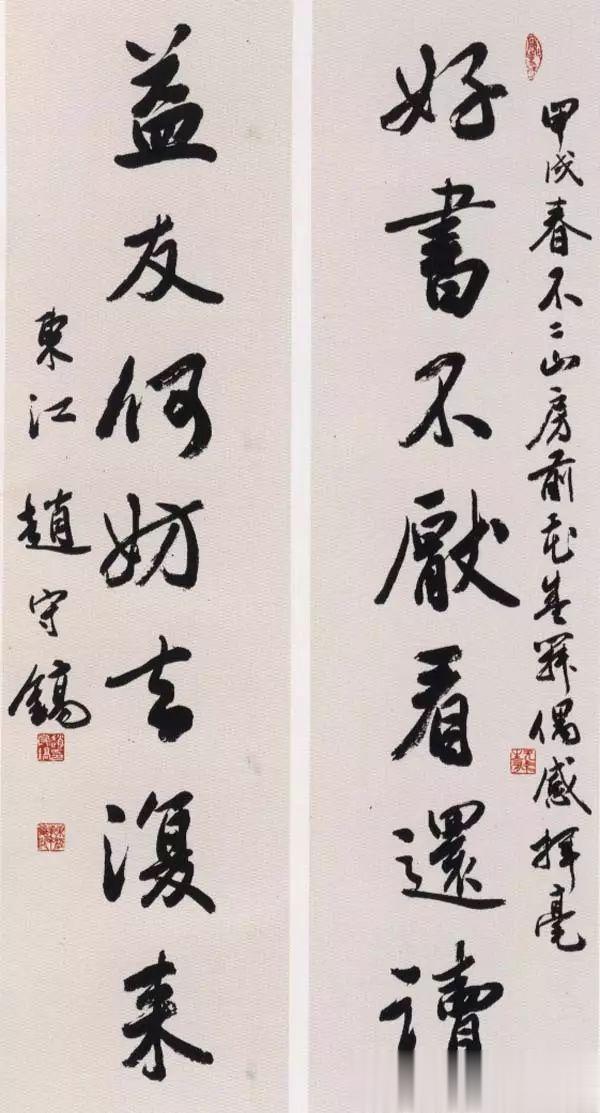 甲戌春不二山房前花偶感揮毫
好書不厭看還讀
益友何妨去復来
東江趙守鎬